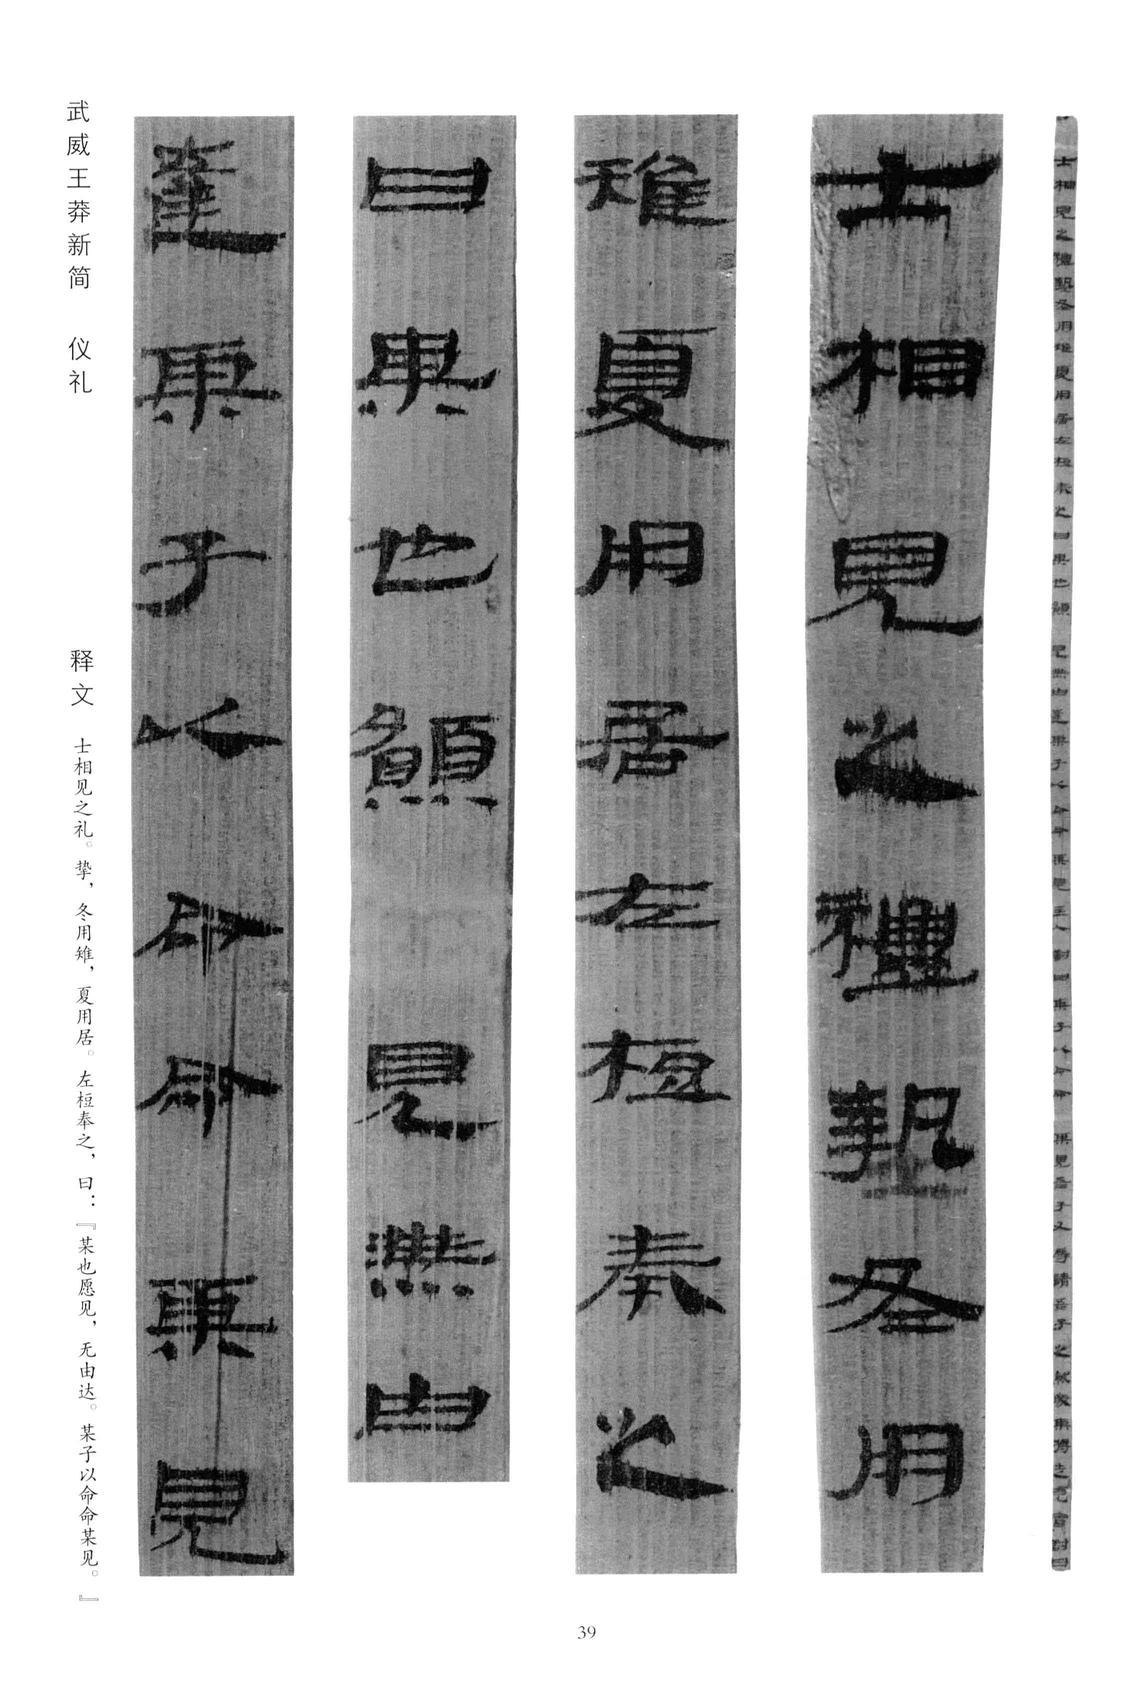 士相見之禮摯冬用
雉夏用居左梪奉之
曰某也願見無由
達某子以命命某見
武威王莽新简 仪礼
释文 士相见之礼。挚，冬用雉，夏用居。左梪奉之，曰：『某也愿见，无由达。某子以命命某见。』
39